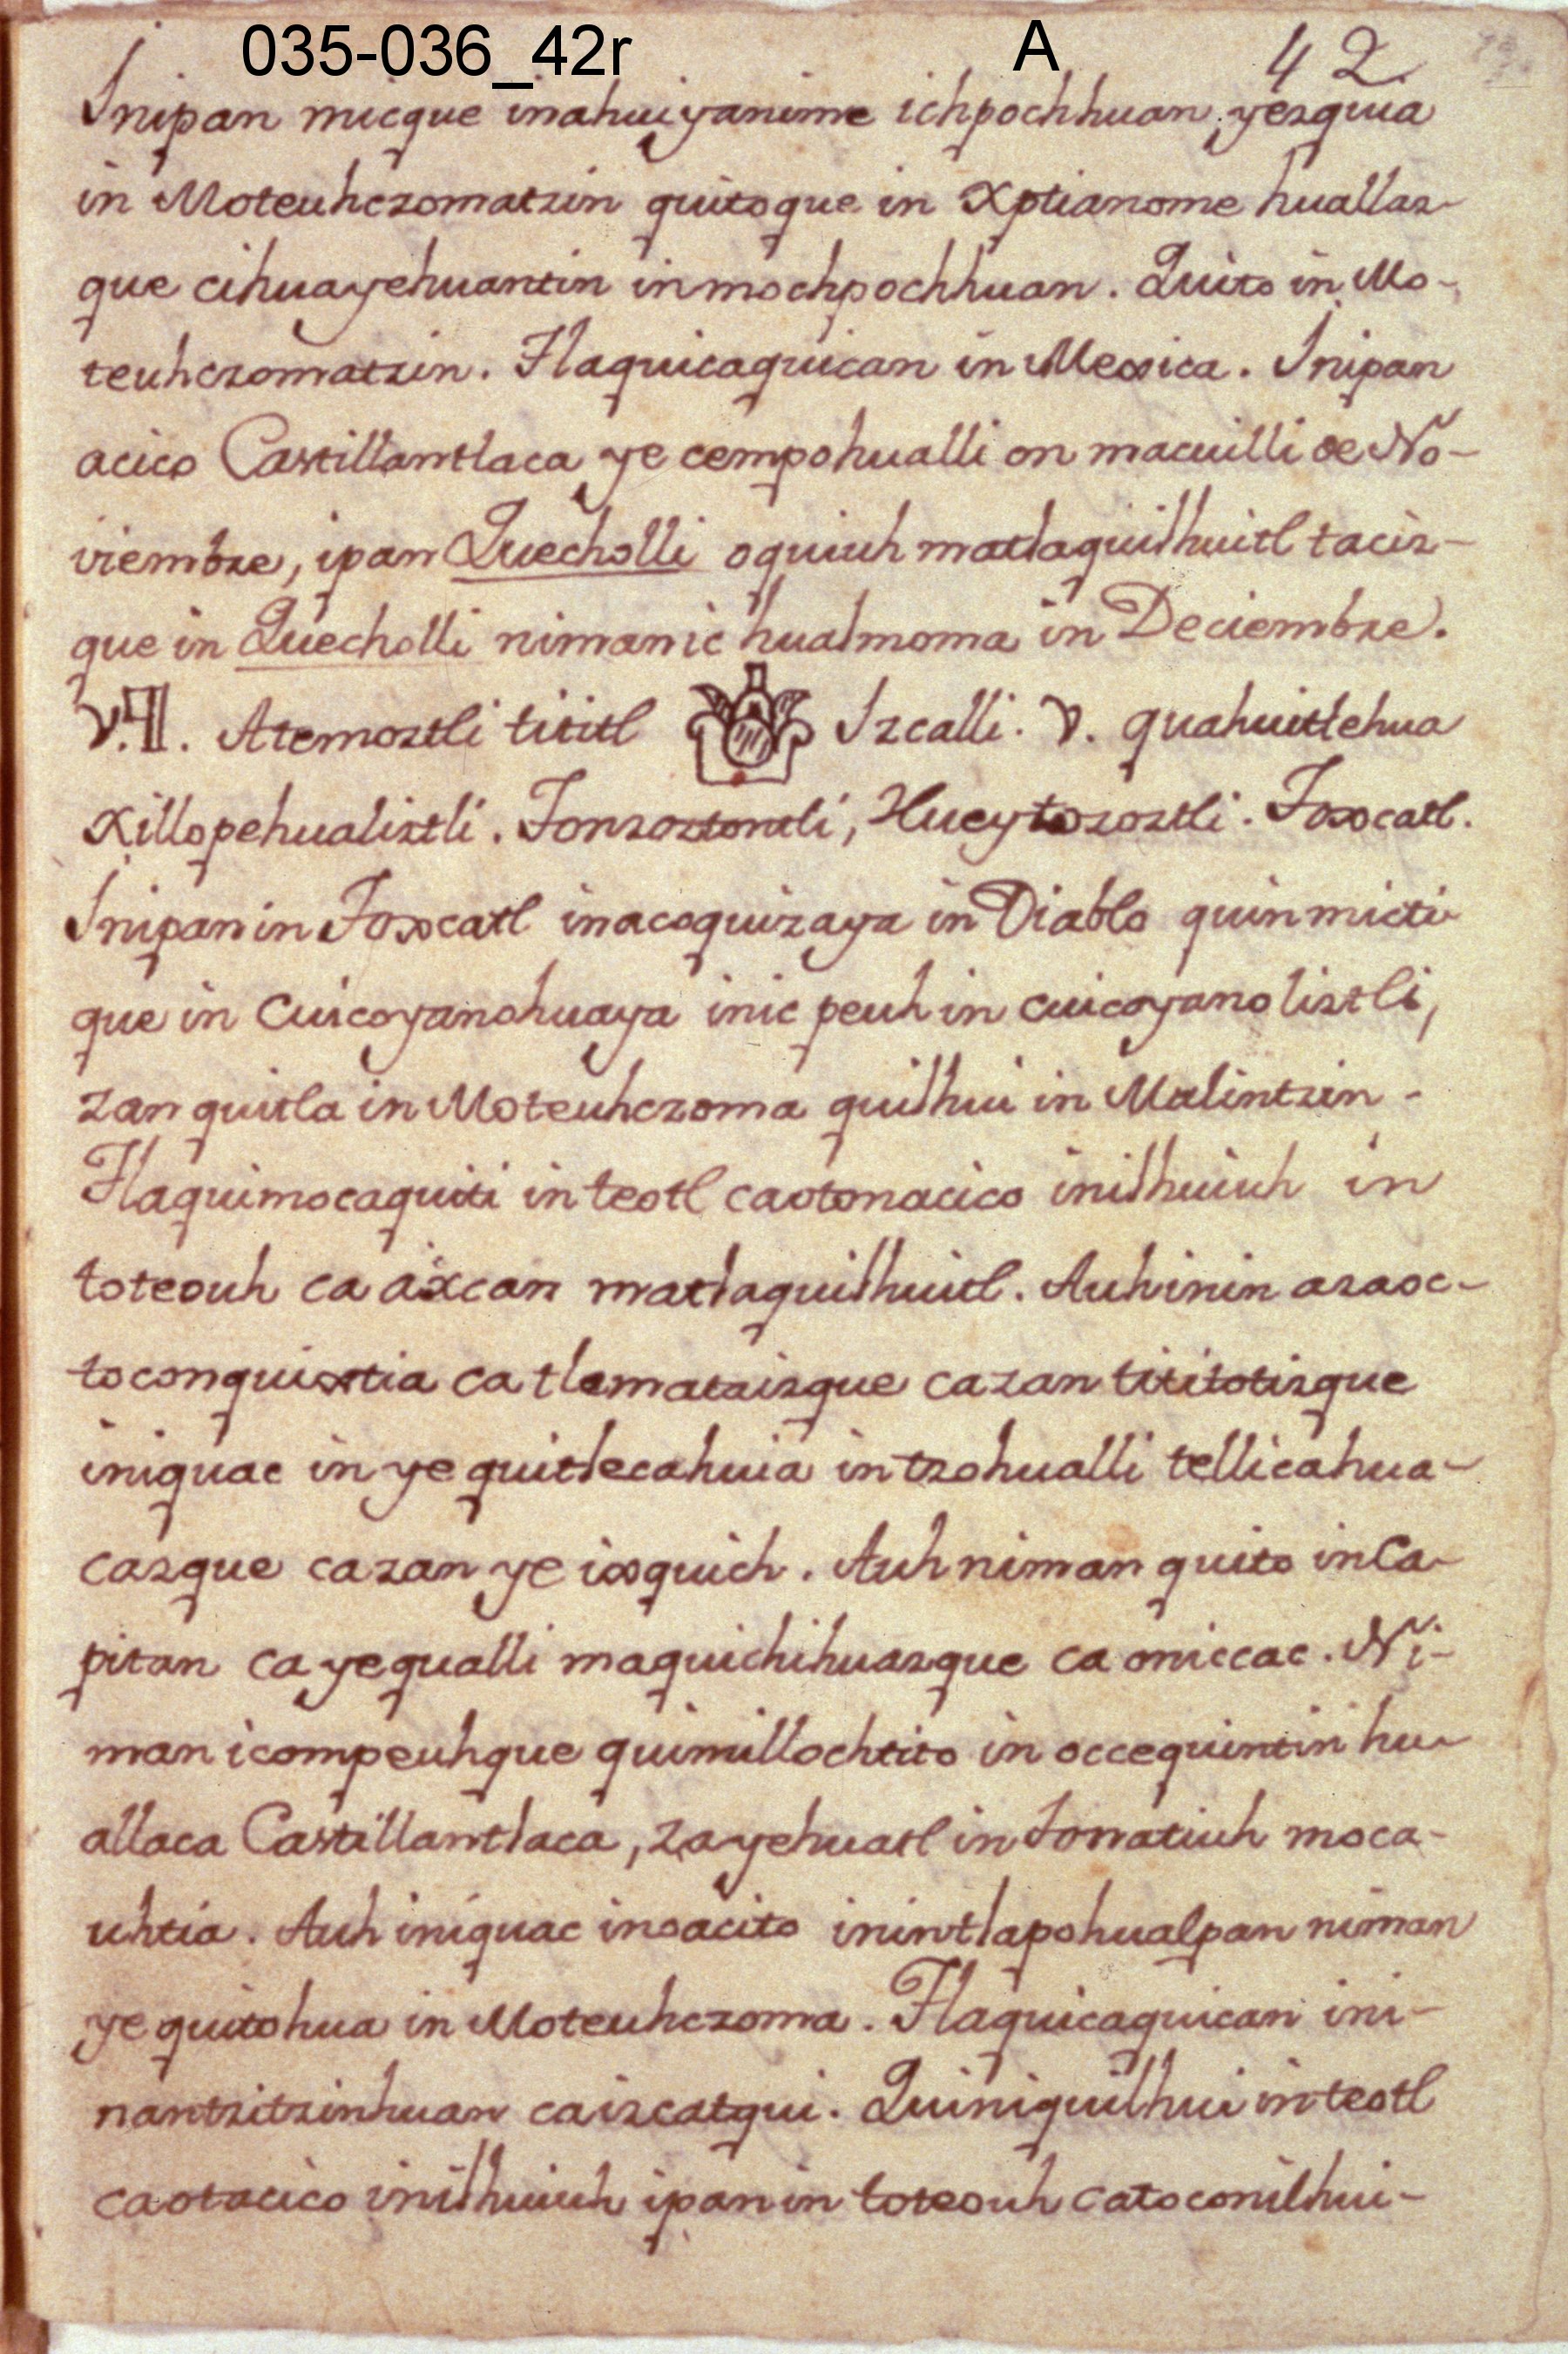 035-036_42r A 42
Inipan micque inahuiyanime ichpochhuan, yezquia
in Moteuhczomatzin quitoque in Xptianome huallaz-
que cihuayehuantin inmochpochhuan. Quito in Mo-
teuhczomatzin. Tlaquicaquican in Mexica. Inipan
acico Castillantlaca ye cempohualli on macuilli de No-
viembre, ipan Quecholli oquiuh matlaquilhuitl taciz-
que in Quecholli nimanic hualmoma in Deciembre.
Atemoztli tititl Izcalli. V. quahuitlehua
Xillopehualiztli. Tonzoztontli, Hueytozoztli. Toxcatl.
Inipanin Toxcatl inacoquizaya in Diablo quinmicti-
que in Cuicoyanohuaya inic peuh in cuicoyanoliztli,
zan quitla in Moteuhczoma quilhui in Malintzin-
Tlaquimocaquiti in teotl caotonacico inilhuiuh in
toteouh ca äxcan matlaquilhuitl. Auhinin azaoc-
toconquixtia ca tlamatazisque cazan titititotizque
iniquac in ye quitlecahuia in tzohualli tellicahua-
cazque cazan ye ixquich. Auh niman quito inCa-
pitan ca yequalli maquichihuazque ca oniccac. Ni-
man icompeuhque quimillochtito in occequintin hu-
allaca Castillantlaca, zayehuatl in tonatiuh moca-
uhtia. Auh iniquac inoacito inintlapohualpan niman
ye quitohua in Moteuhczoma. Tlaquicaquican ini-
nantzitzinhuan caizcatqui. Quiniquilhui in teotl
caotacico inilhuiuh ipanin toteouh catoconilhui-